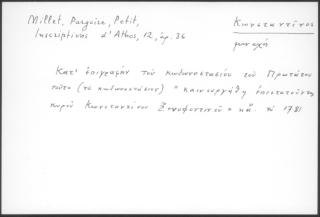 Millet, Pargoire, Petit,
Inscriptions d'Athos, 12, ἀρ. 36
Κωνσταντῖνος
μοναχὸς
Κατ' ἐπιγραφὴν τοῦ κωδωνοστασίου τοῦ Πρωτάτου
τοῦτο (τὸ κωδωνοστάσιον) "καινουργήθη ἐπιστατοῦντος
κυροῦ Κωνσταντίνου Ξηροφοντινοῦ" κἄ. τὸ 1781